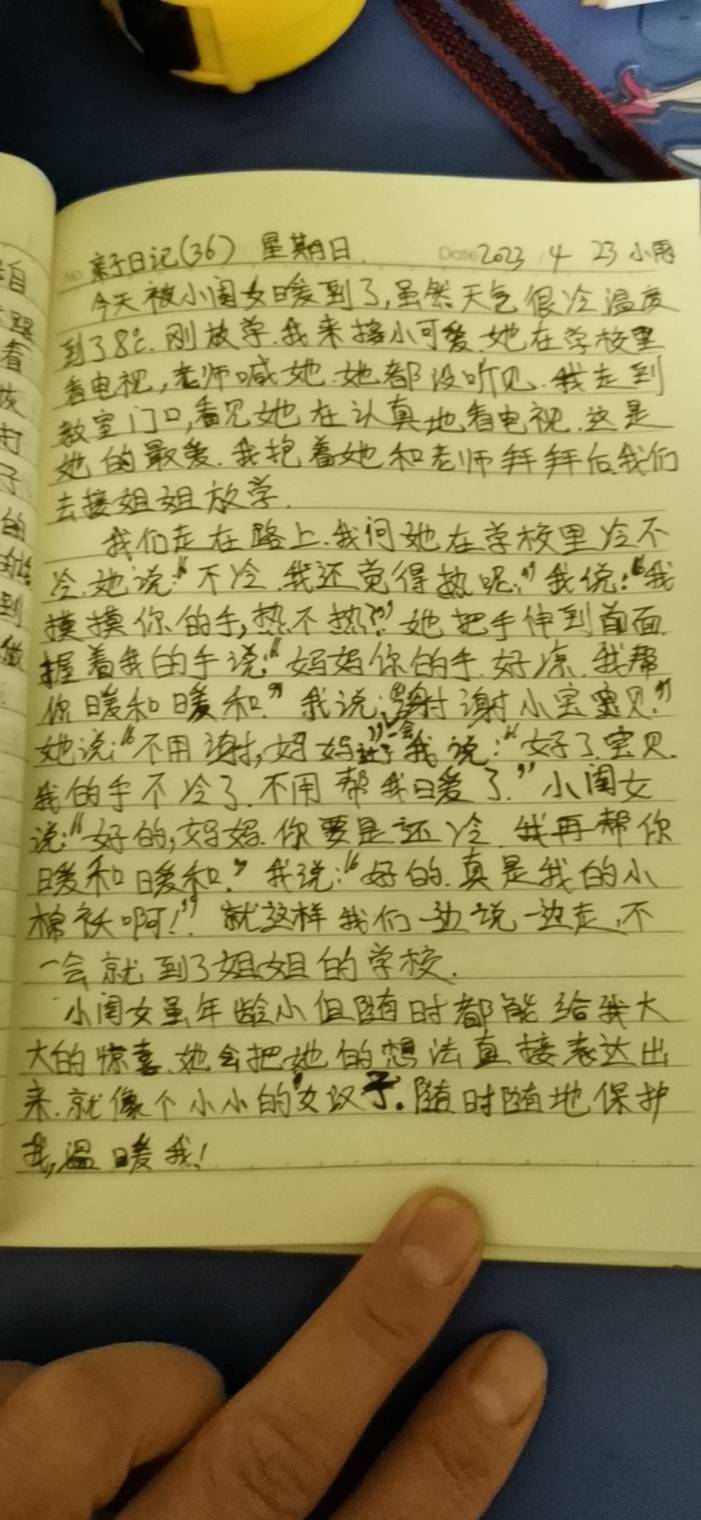 亲子日记(36) 星期日. Date 2023 4 23 小雨
今天被小闺女暖到了,虽然天气很冷温度
到了8℃. 刚放学.我来接小可爱.她在学校里
看电视,老师喊她.她都没听见.我走到
教室门口,看见她在认真地看电视.这是
她的最爱.我抱着她和老师拜拜后.我们
去接姐姐放学.
我们走在路上.我问她在学校里冷不
冷.她说:“不冷.我还觉得热呢.”我说:“我
摸摸你的手,热不热?”她把手伸到前面.
握着我的手说:“妈妈你的手.好凉.我帮
你暖和暖和.”我说:“谢谢小宝宝贝.”
她说:“不用谢,妈妈”过了一会我说:“好了.宝贝.
我的手不冷了.不用帮我暖了.”小闺女
说:“好的,妈妈.你要是还冷.我再帮你
暖和暖和.”我说:“好的.真是我的小
棉袄啊!”就这样我们一边说一边走,不
一会就到了姐姐的学校.
小闺女虽年龄小但随时都能给我大
大的惊喜.她会把她的想法直接表达出
来.就像个小小的女汉子.随时随地保护
我,温暖我!
自
看
打
子
的
到
做